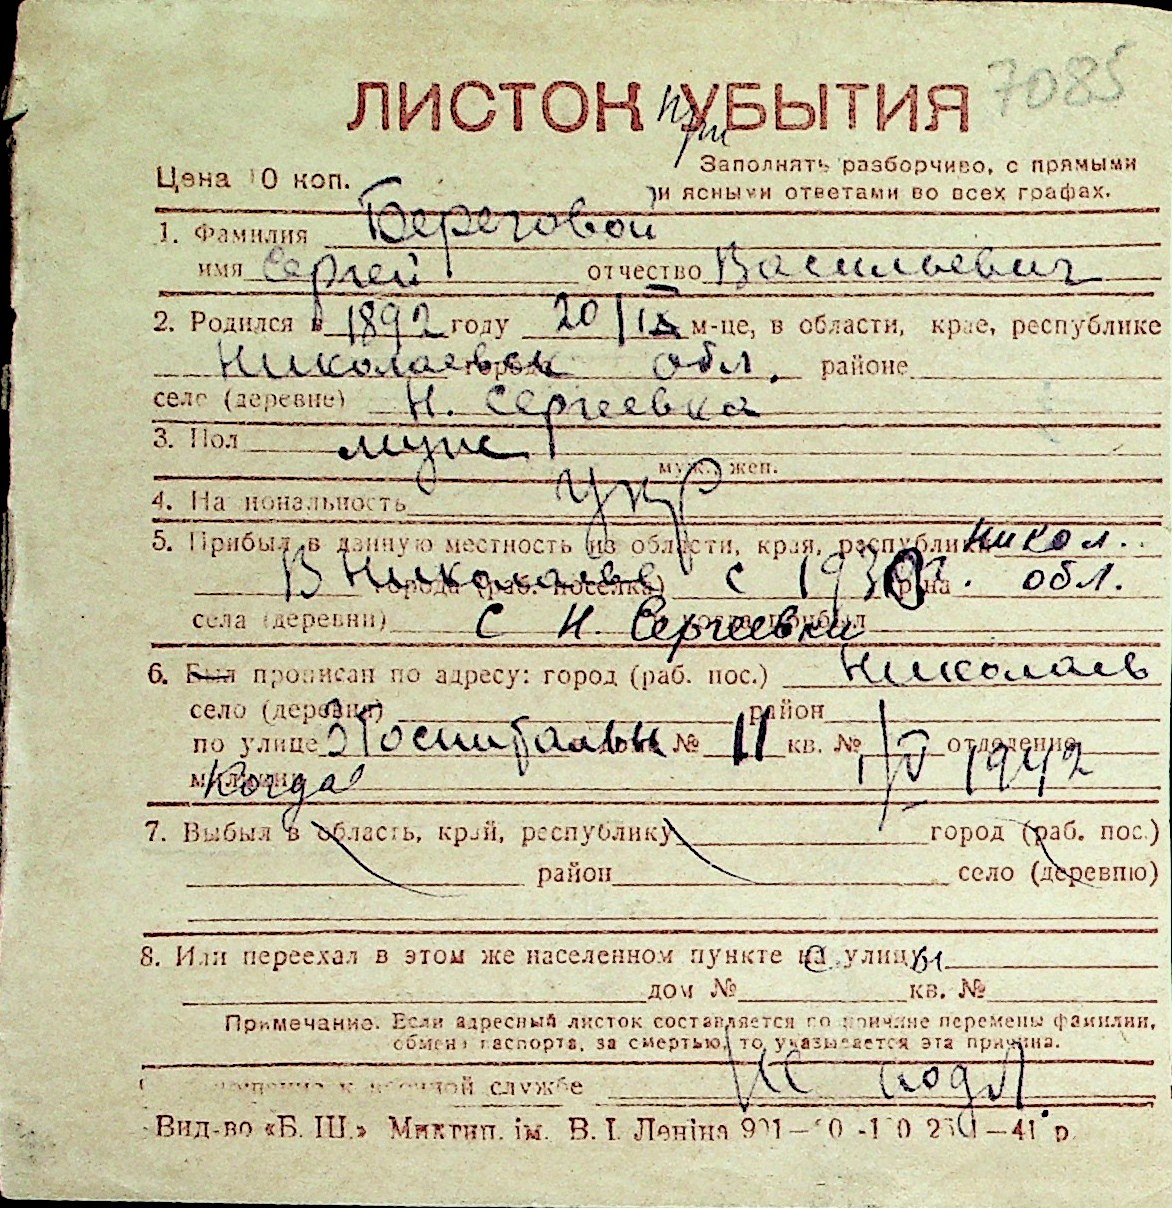 7085
ЛИСТОК УБЫТИЯ
при
Цена 10 коп.
Заполнять разборчиво, с прямыми
и ясными ответами во всех графах.
1. Фамилия Береговой
имя Сергей отчество Васильевич
2. Родился в 1892 году 20/IX м-це, в области, крае, республике
Николаевск города обл. районе
село (деревне) Н. Сергеевка
3. Пол муж
муж., жен.
4. Национальность укр
5. Прибыл в данную местность из области, края, республики Никол.
В Николаеве города (раб. поселка) с 1930 г. р-на обл.
села (деревни) с Н. Сергеевки когда прибыл
6. Был прописан по адресу: город (раб. пос.) Николаев
село (деревня) район
по улице 3 Госпитальн дом № 11 кв. № отделение
милиции Когда 1/V 1942
7. Выбыл в область, край, республику город (раб. пос.)
район село (деревню)
8. Или переехал в этом же населенном пункте с улицы
дом № кв. №
Примечание. Если адресный листок составляется по причине перемены фамилии,
обмена паспорта, за смертью, то указывается эта причина.
к военной службе не подл.
Вид-во «Б. Ш.» Миктип. ім. В. І. Леніна